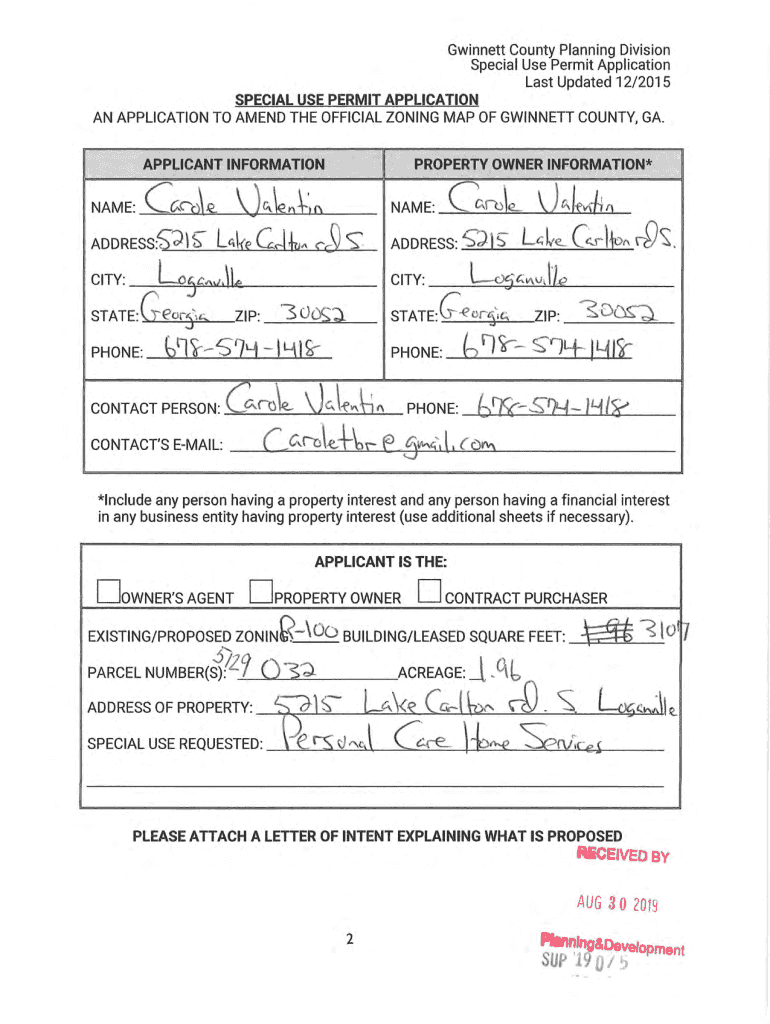 Gwinnett County Planning Division
Special Use Permit Application
Last Updated 12/2015
SPECIAL USE PERMIT APPLICATION
AN APPLICATION TO AMEND THE OFFICIAL ZONING MAP OF GWINNETT COUNTY, GA.
APPLICANT INFORMATION PROPERTY OWNER INFORMATION*
NAME: Carole Valentin NAME: Carole Valentin
ADDRESS: 5215 Lake Carlton rd S ADDRESS: 5215 Lake Carlton rd S.
CITY: Loganville CITY: Loganville
STATE: Georgia ZIP: 30052 STATE: Georgia ZIP: 30052
PHONE: 678-574-1418 PHONE: 678-574-1418
CONTACT PERSON: Carole Valentin PHONE: 678-574-1418
CONTACT'S E-MAIL: Caroletbr@gmail.com
*Include any person having a property interest and any person having a financial interest
in any business entity having property interest (use additional sheets if necessary).
APPLICANT IS THE:
OWNER'S AGENT PROPERTY OWNER CONTRACT PURCHASER
EXISTING/PROPOSED ZONING R-100 BUILDING/LEASED SQUARE FEET: 3107
PARCEL NUMBER(S): 5129 032 ACREAGE: 1.96
ADDRESS OF PROPERTY: 5215 Lake Carlton rd. S. Loganville
SPECIAL USE REQUESTED: Personal Care Home Services
PLEASE ATTACH A LETTER OF INTENT EXPLAINING WHAT IS PROPOSED
RECEIVED BY
AUG 30 2019
2
Planning&Development
SUP '19 075